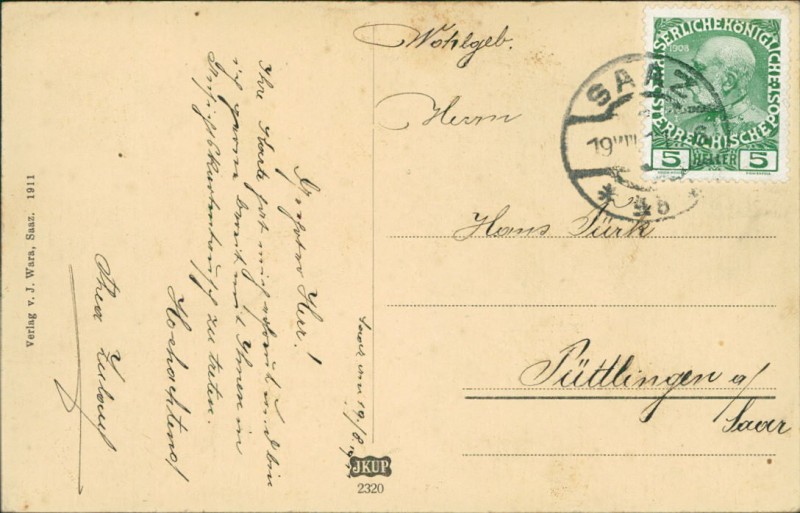 Saaz am 19/8.
Geehrter Herr!
Ihre Karte hat mich erfreut und bin
ich gerne bereit mit Ihnen in
Ansichtskartentausch zu treten.
Hochachtend
Verlag v. J. Wara, Saaz. 1911
JKUP
2320
Wohlgeb.
Herrn
Hans Türk
Püttlingen a/
Saar
KAISERLICHE KÖNIGLICHE
ÖSTERREICHISCHE POST
1908
5 HELLER 5
SAAZ
19 VIII
* 4b *